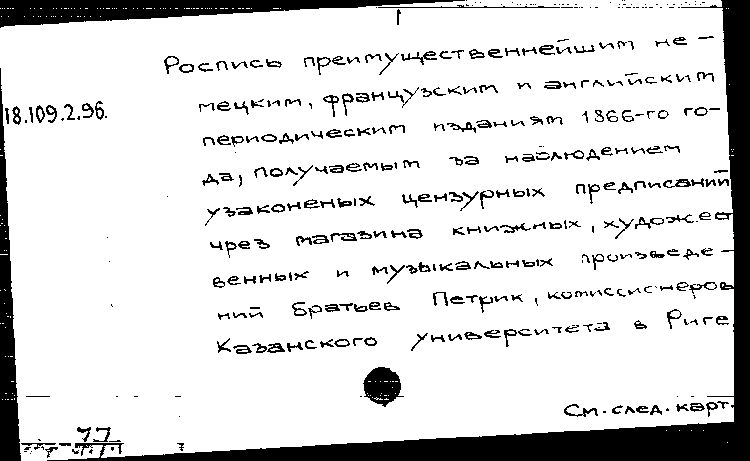 Роспись преимущественнейшим не-
18.109.2.96.
мецким, французским и английским
периодическим изданиям 1866-го го-
да, получаемым за наблюдением
узаконеных цензурных предписаний
чрез магазина книжных, художест
венных и музыкальных произведе-
ний Братьев Петрик, комиссионеров
Казанского университета в Риге.
См. след. карт.
77